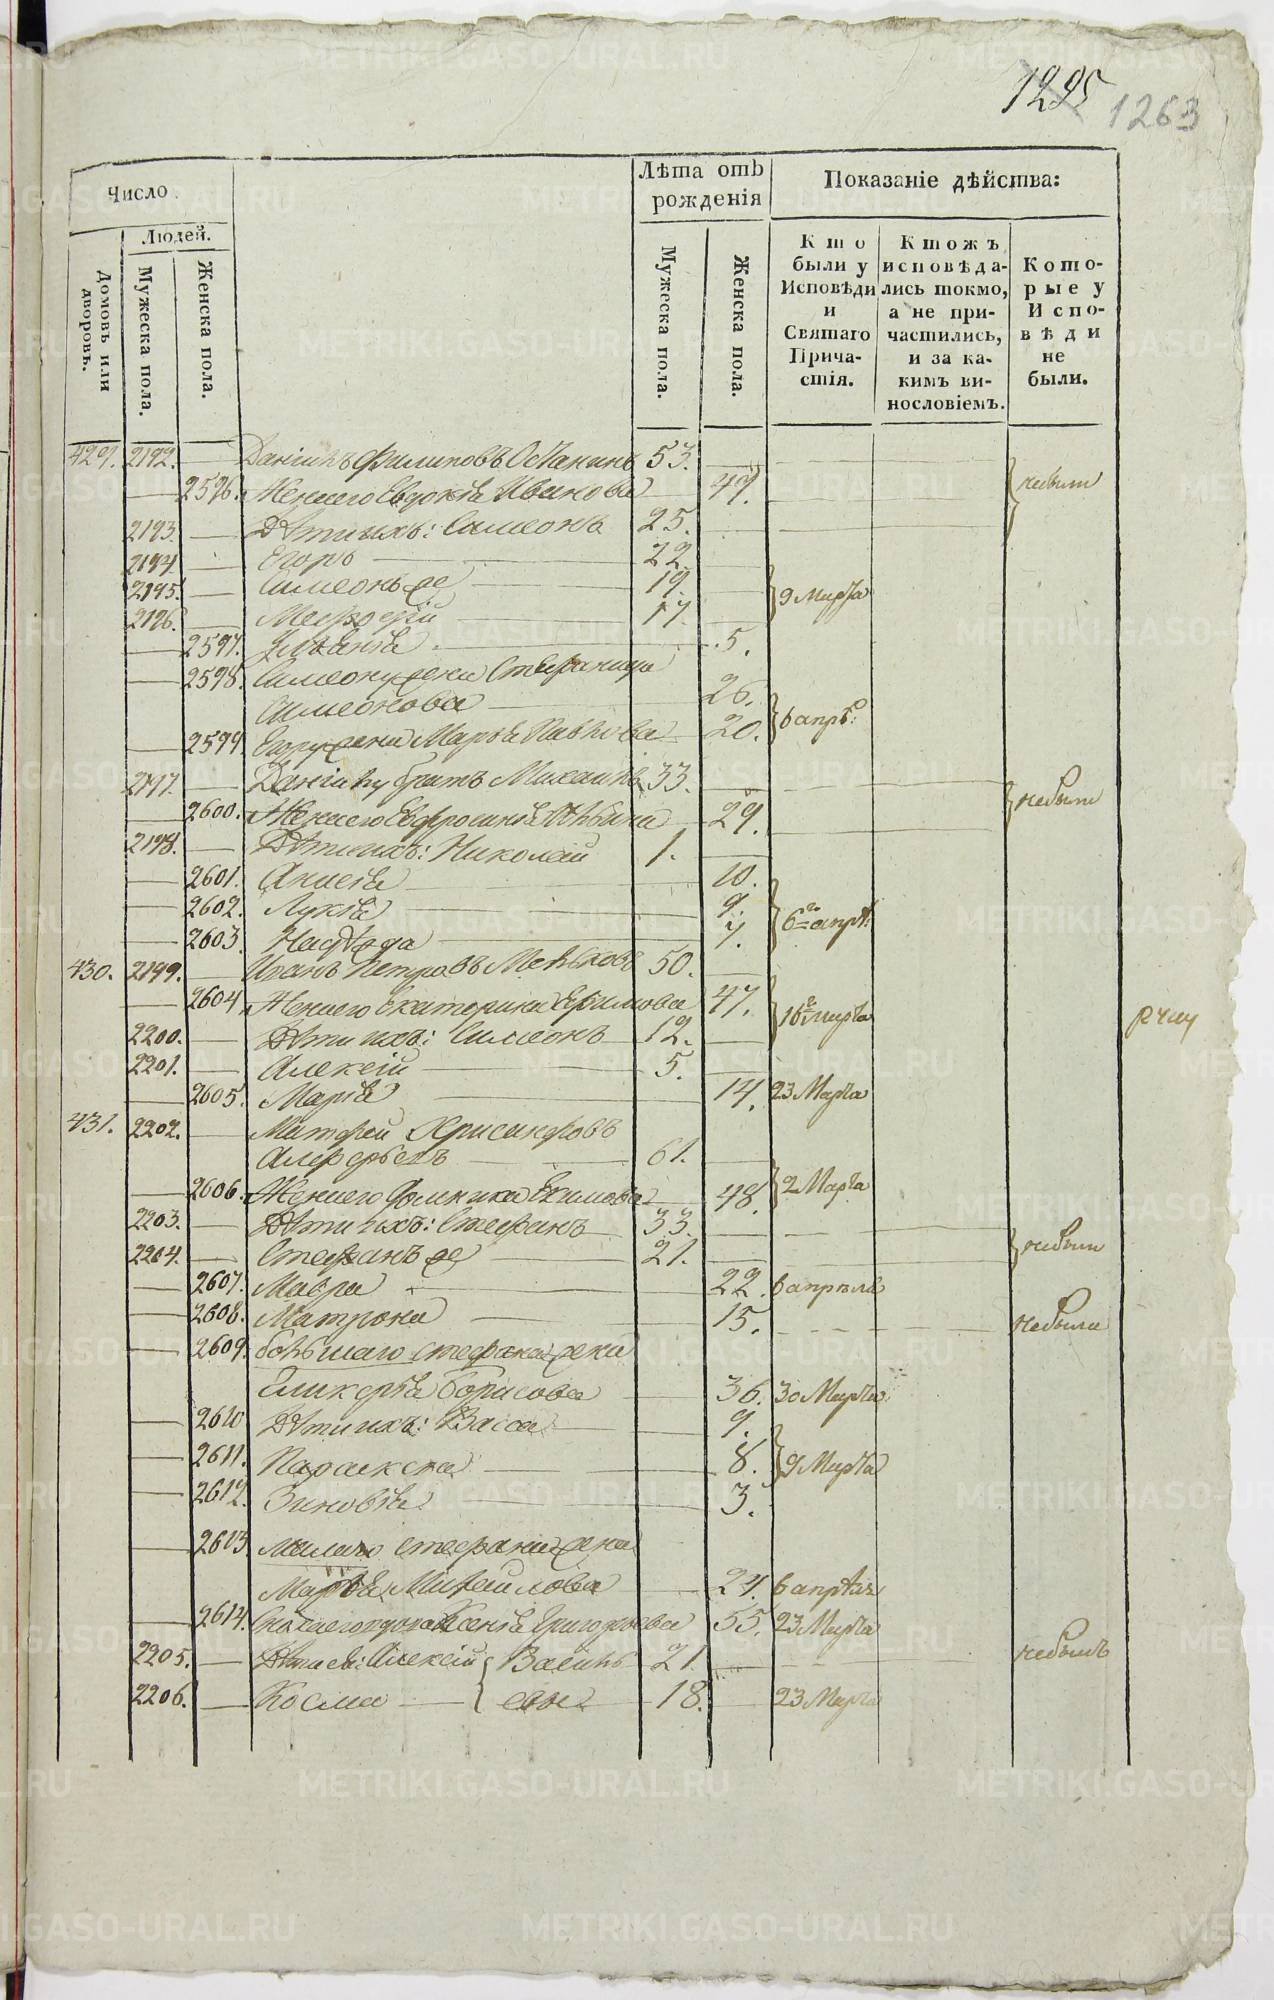 1295 1263
Число
Людей.
Домовъ или дворовъ.
Мужеска пола.
Женска пола.
Лѣта отъ рожденія
Мужеска пола.
Женска пола.
Показаніе дѣйства:
Кто были у Исповѣди и Святаго Причастія.
Ктожъ исповѣдались токмо, а не причастились, и за какимъ винословіемъ.
Которые у Исповѣди не были.
429. 2192. Данiилъ Филиповъ Останинъ 53.
2596. Жена его Евдокiя Иванова 49. небыли
2193. Дѣти ихъ: Симеонъ 25.
2194. Егоръ 22.
2195. Симеонъ же 19. 9 Марта
2196. Мефодiй 17.
2597. 5.
2598. Симеону жена Стефанида
Симеонова 26.
2599. Егору жена Марѳа Павлова 20. 6 апрѣ:
2197. Данiилу братъ Михаилъ 33.
2600. Жена его Евфросинiя 29. небыли
2198. Дѣти ихъ: Николай 1.
2601. Анисiя 10.
2602. 9. 6го апрѣ:
2603. Надѣжда 7.
430. 2199. Иванъ Петровъ Мельковъ 50.
2604 Жена его Екатерина Ефимова 47. 16го марта
2200. Дѣти ихъ: Симеонъ 12.
2201. Алексiй 5.
2605. Марiя 14. 23 Марта
431. 2202. Матфей Хрисанфовъ
Алферьевъ 61.
2606. Жена его Домника Екимова 48. 2 Марта
2203. Дѣти ихъ: Стефанъ 33.
2204. Стефанъ же 21. небыли
2607. Мавра 22. 6 апрѣля
2608. Матрона 15. небыла
2609. большаго Стефана жена
Гликерiя Борисова 36. 30 Марта
2610 Дѣти ихъ: Васса 9.
2611. Параскева 8. 9 Марта
2612. Зиновiя 3.
2613 малаго Стефана жена
Марѳа Михайлова 24. 6 апрѣля
2614. Ксенiя Григорьева 55. 23 Марта
2205. Дѣти ея: Алексiй { Василь 21. небылъ
2206. Косма { евы 18. 23 Марта